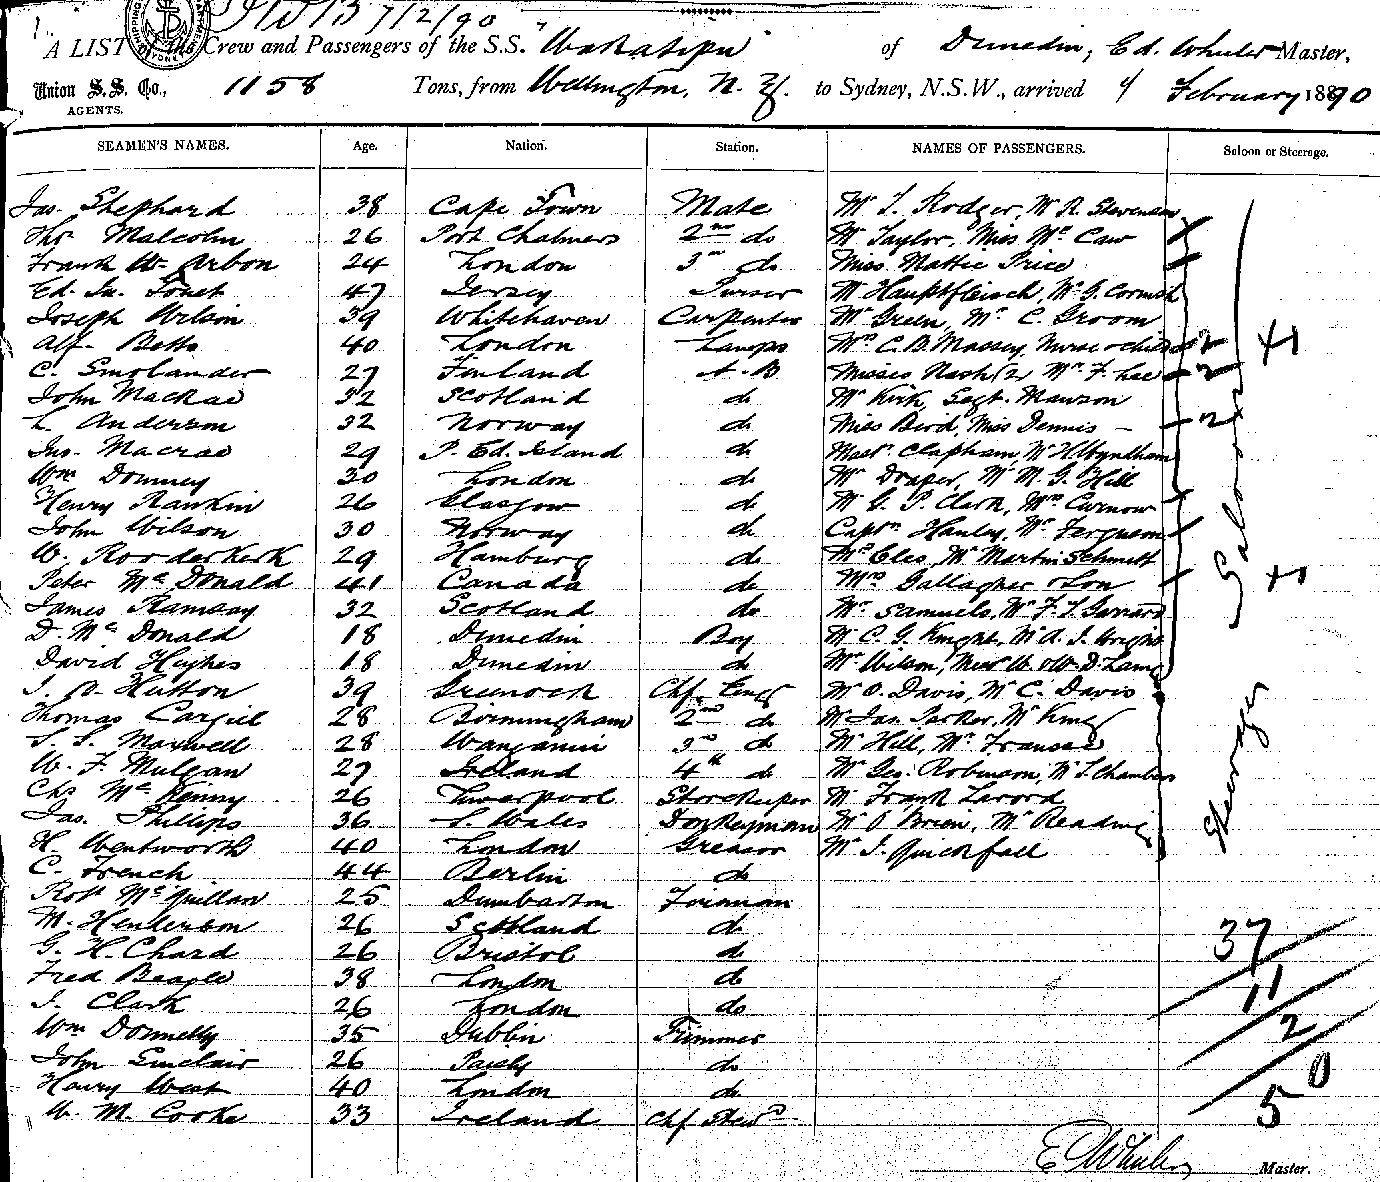 1.
7/2/90
A LIST of the Crew and Passengers of the S.S. "Wakatipu" of Dunedin, Ed. Wheeler Master,
Union S.S. Co., AGENTS. 1158 Tons, from Wellington, N.Z. to Sydney, N.S.W., arrived February 1890
SEAMEN'S NAMES. Age. Nation. Station. NAMES OF PASSENGERS. Saloon or Steerage.
Jas. Shephard 38 Cape Town Mate Mr T. Rodger, Mr R. Stevenson
Thos Malcolm 26 Port Chalmers 2nd do Mr Taylor, Miss McCaw
Frank W. Arbon 24 London 3rd do Miss Mattie Price
Ed. 47 Jersey Purser Mr Hauptfleisch, Mr G. Cornish
Joseph Wilson 39 Whitehaven Carpenter Mr Green, Mr C. Groom
Alf. Betts 40 London Lamps Mrs C. B. Massey, Nurse & child 2
C. Smolander 27 Finland A.B Misses Nash (2) Mr F. Lee 2
John MacRae 32 Scotland do Mr Kirk, Sergt. Mawson
L. Anderson 32 Norway do Miss Bird, Miss Dennis 2
Jas. Macrae 29 P. Ed. Island do Mast. Clapham, Mr H Wyndham
Wm Domney 30 London do Mr Draper, Mr M. G. Hill
Henry Rankin 26 Glasgow do Mr G. P. Clark, Mrs Curnow
John Wilson 30 Norway do Captn Hanley, Mr Ferguson
W. Roorderkerk 29 Hamburg do Mr Martin Schmitt
Peter McDonald 41 Canada do Mrs Gallagher & Son
James Ramsay 32 Scotland do Mr Samuels, Mr F. J. Garrard
D. McDonald 18 Dunedin Boy Mr C. G. Knight, Mr A. J. Wright
David Hughes 18 Dunedin do Mr Wilson,
J. W. Hutton 39 Greenock Chf. Engr Mr O. Davis, Mr C. Davis
Thomas Cargill 28 Birmingham 2nd do Mr Jas. Parker, Mr King
S. S. Maxwell 28 Wanganui 3rd do Mr Hill,
W. F. Mulgan 27 Ireland 4th do Mr Geo. Robinson, Mr S. Chambers
Chs McKenny 26 Liverpool Storekeeper Mr Frank Larord
Jas. Phillips 36 S. Wales Donkeyman Mr O Brien, Mr Reading
H. Wentworth 40 London Greaser Mr J. Quickfall
C. French 44 Berlin do
Robt McQuillan 25 Dumbarton Fireman
M. Henderson 26 Scotland do
G. H. Chard 26 Bristol do
Fred Beagle 38 London do
J. Clark 26 London do
Wm Donnelly 35 Dublin Trimmer
John Sinclair 26 Paisly do
Harry West 40 London do
W. M. Cooke 33 Ireland Chf Stewd
Saloon
Steerage
37
11
2
50
E Wheeler Master.